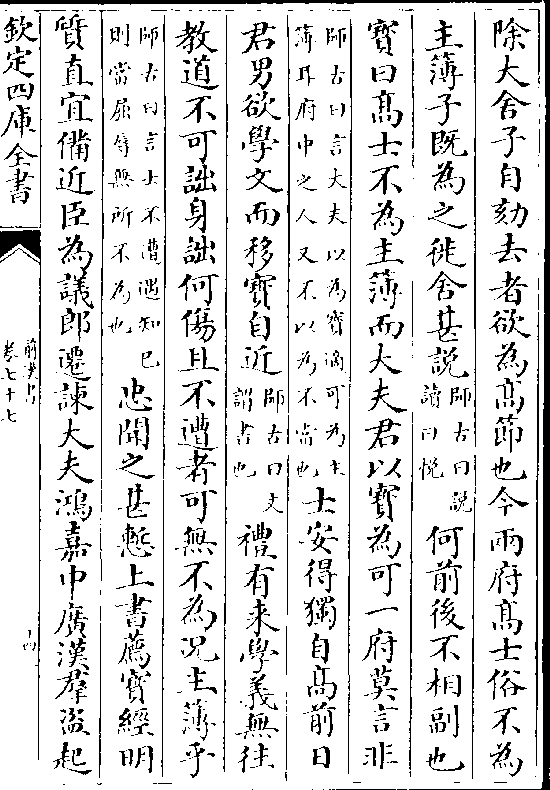 除大舍子自劾去者欲為高節也今兩府高士俗不為
主簿子既為之徙舍甚説師古曰説讀曰悦何前後不相副也
寳曰高士不為主簿而大夫君以寳為可一府莫言非
師古曰言大夫以為寳適可為主簿耳府中之人又不以為不當也士安得獨自高前日
君男欲學文而移寳自近師古曰文謂書也禮有来學義無往
教道不可詘身詘何傷且不遭者可無不為况主簿乎
師古曰言士不遭遇知已則當屈辱無所不為也忠聞之甚慙上書薦寳經明
質直宜備近臣為議郎遷諫大夫鴻嘉中廣漢羣盗起
欽定四庫全書
前漢書
卷七十七
十四